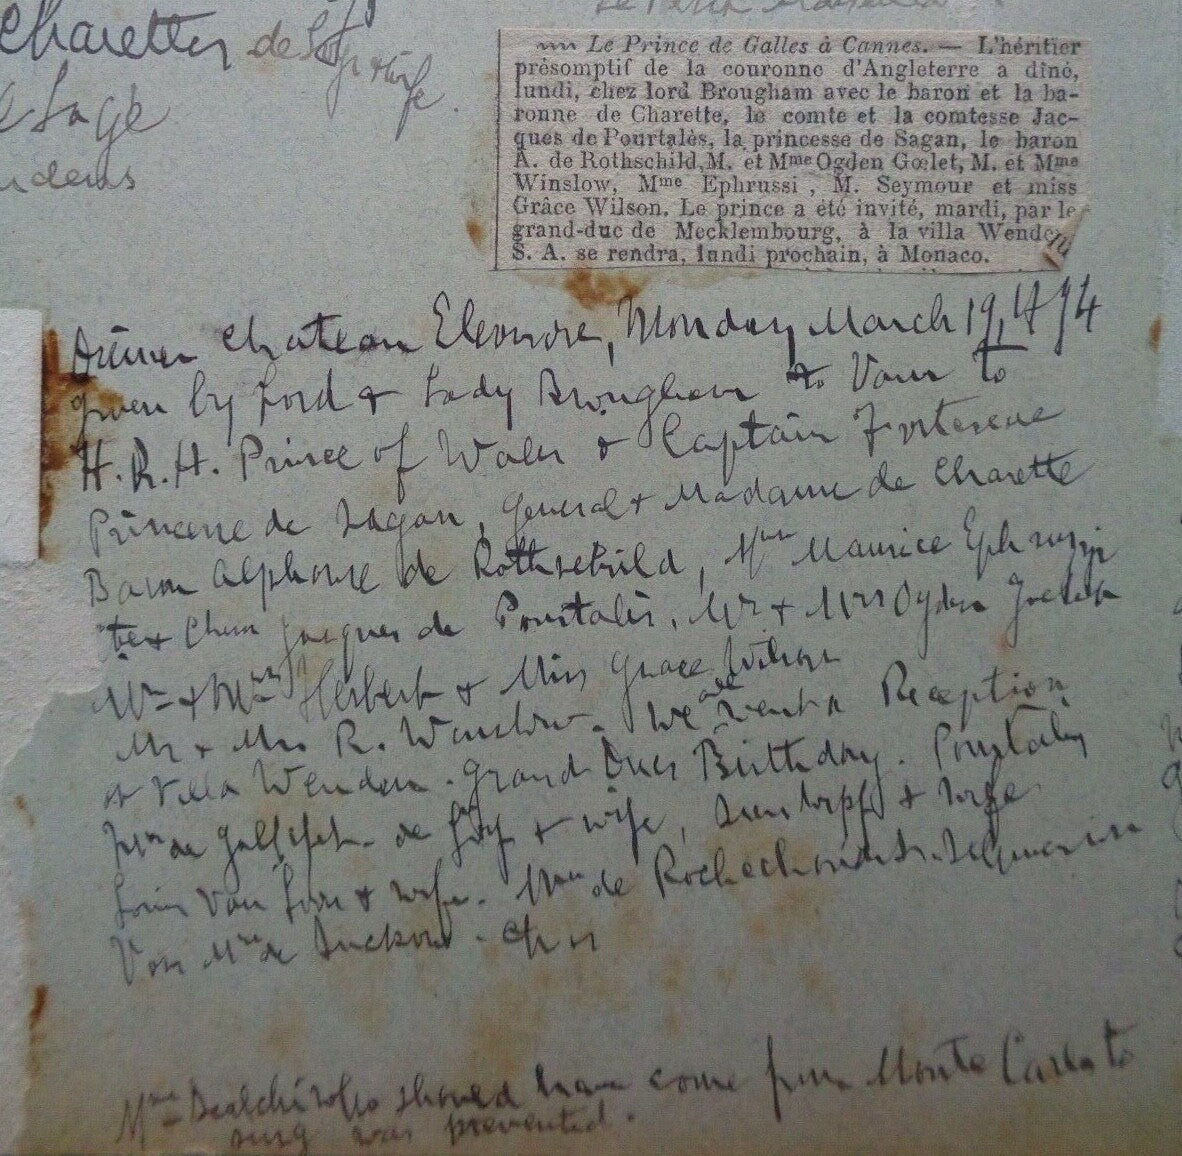 Charette de
Sagè
Le Prince de Galles à Cannes. — L'héritier
présomptif de la couronne d'Angleterre a dîné,
lundi, chez lord Brougham avec le baron et la ba-
ronne de Charette, le comte et la comtesse Jac-
ques de Pourtalès, la princesse de Sagan, le baron
A. de Rothschild, M. et Mme Ogden Gœlet, M. et Mme
Winslow, Mme Ephrussi, M. Seymour et miss
Grâce Wilson. Le prince a été invité, mardi, par le
grand-duc de Mecklembourg, à la villa Wende
S. A. se rendra, lundi prochain, à Monaco.
Dinner Chateau Eleonore, Monday March 19, 94
given by Lord & Lady Brougham to
H.R.H. Prince of Wales & Captain
Princesse de Sagan, General & Madame de Charette
Baron Alphonse de Rothschild, Mme Maurice Ephrussi
Jacques de Pourtalès, Mr & Mrs Ogden Goelet
Herbert & Miss Grace Wilson
Mr & Mrs R. Winslow. We all went a Reception
at Villa Wenden. Grand Ducs Birthday. Pourtales
de & wife, & wife
Louis Von & wife. Mme de Rochechouart.
Von Mme de
Mme should have come from Monte Carlo to
sing was prevented.